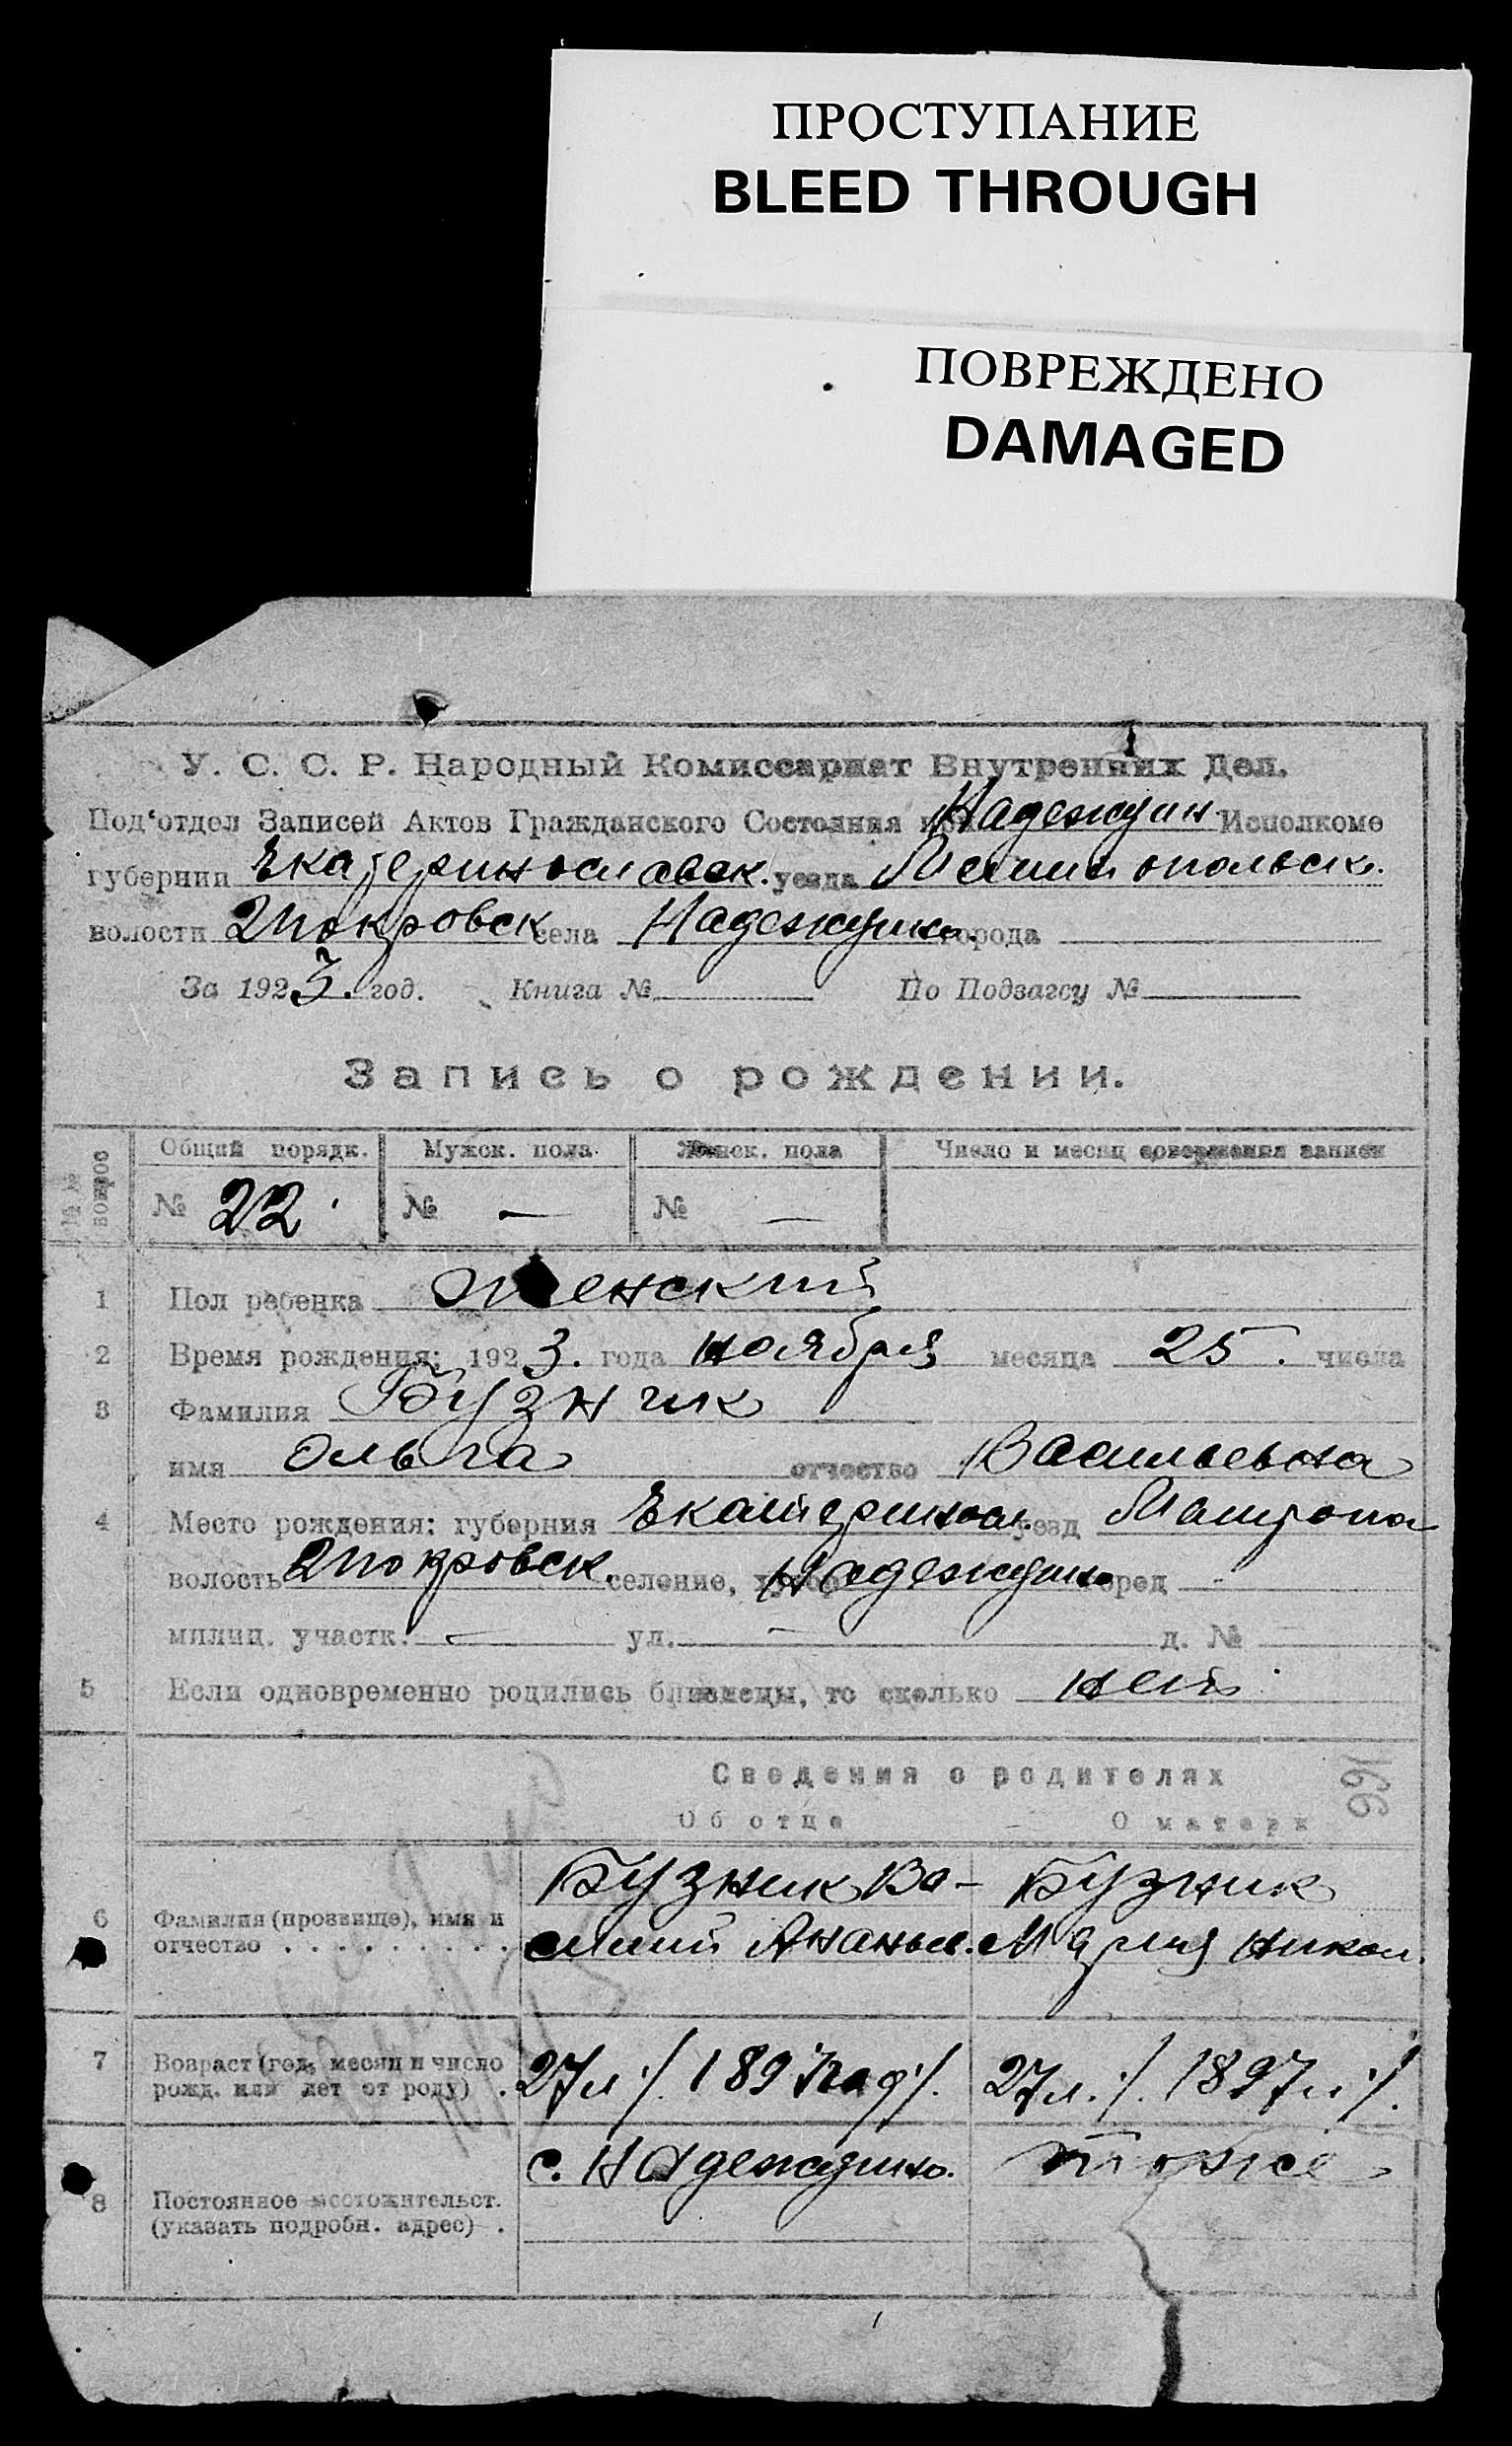 ПРОСТУПАНИЕ
BLEED THROUGH
ПОВРЕЖДЕНО
DAMAGED
У. С. С. Р. Народный Комиссариат Внутренних Дел.
Под'отдел Записей Актов Гражданского Состояния при Надеждин. Исполкоме
губернии Екатеринославск. уезда Мелитопольск.
волости Покровск села Надеждино. города
За 1923. год. Книга № По Подзагсу №
Запись о рождении.
№№ вопрос
Общий порядк. Мужск. пола Женск. пола Число и месяц совершения записи
№ 22. № — № —
1 Пол ребенка женский
2 Время рождения: 1923. года ноября месяца 25. числа
3 Фамилия Бузник
имя Ольга отчество Васильевна
4 Место рождения: губерния Екатериносл. уезд
волость Покровск. селение, хутор Надеждино город —
милиц. участк. — ул. — д. № —
5 Если одновременно родились близнецы, то сколько нет.
Сведения о родителях 166
Об отце О матери
Бузник Ва- Бузник
6 Фамилия (прозвище), имя и
отчество . . . . . . . . . силий Ананьев. Мария Никол.
7 Возраст (год, месяц и число
рожд. или лет от роду) . 27 л ./. 1897 год ./. 27 л. ./. 1897 г. ./.
с. Надеждино. тоже
8 Постоянное местожительст.
(указать подробн. адрес) .